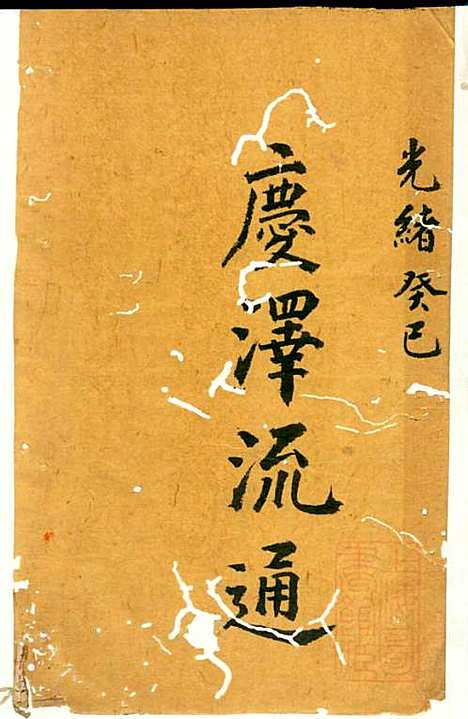 光緒癸巳
慶澤流通